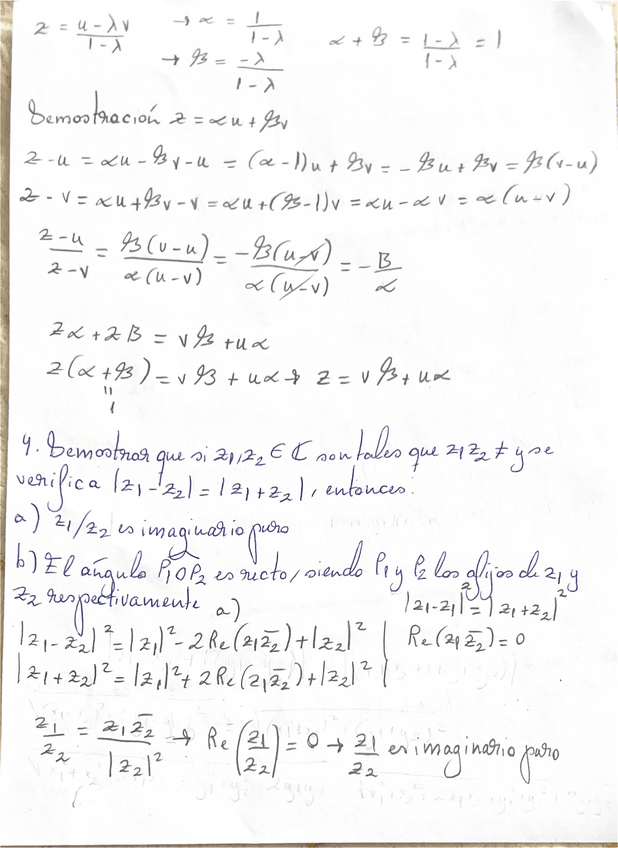 z = (u - λv)/(1 - λ) → α = 1/(1 - λ) α + β = (1 - λ)/(1 - λ) = 1
→ β = -λ/(1 - λ)
Demostración z = αu + βv
z - u = αu - βv - u = (α - 1)u + βv = -βu + βv = β(v - u)
z - v = αu + βv - v = αu + (β - 1)v = αu - αv = α(u - v)
(z - u)/(z - v) = β(v - u)/α(u - v) = -β(u - v)/α(u - v) = -B/α
zα + zB = vβ + uα
z(α + β) = vβ + uα → z = vβ + uα
"
1
4. Demostrar que si z1, z2 ∈ ℂ son tales que z1z2 ≠ y se
verifica |z1 - z2| = |z1 + z2|, entonces:
a) z1/z2 es imaginario puro
b) El ángulo P1OP2 es recto, siendo P1 y P2 los afijos de z1 y
z2 respectivamente a) |z1 - z1|² = |z1 + z2|²
|z1 - z2|² = |z1|² - 2Re(z1z̄2) + |z2|² | Re(z1z̄2) = 0
|z1 + z2|² = |z1|² + 2Re(z1z̄2) + |z2|² |
z1/z2 = z1z̄2/|z2|² → Re(z1/z2) = 0 → z1/z2 es imaginario puro